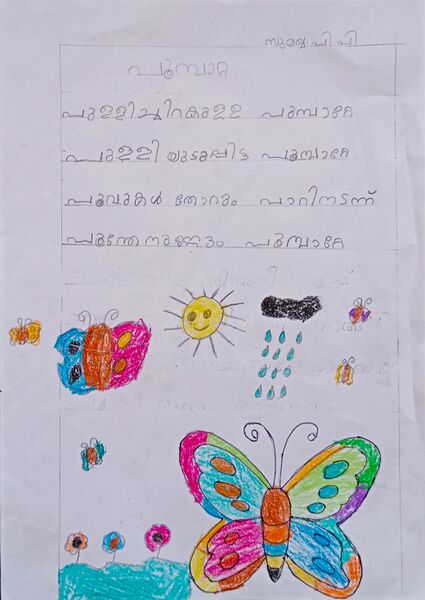 സുമയ്യ പി പി
പൂമ്പാറ്റ
പുള്ളിച്ചിറകുള്ള പൂമ്പാറ്റേ
പുള്ളി യുടുപ്പിട്ട പൂമ്പാറ്റേ
പൂവുകൾ തോറും പാറിനടന്ന്
പൂന്തേനുണ്ണും പൂമ്പാറ്റേ